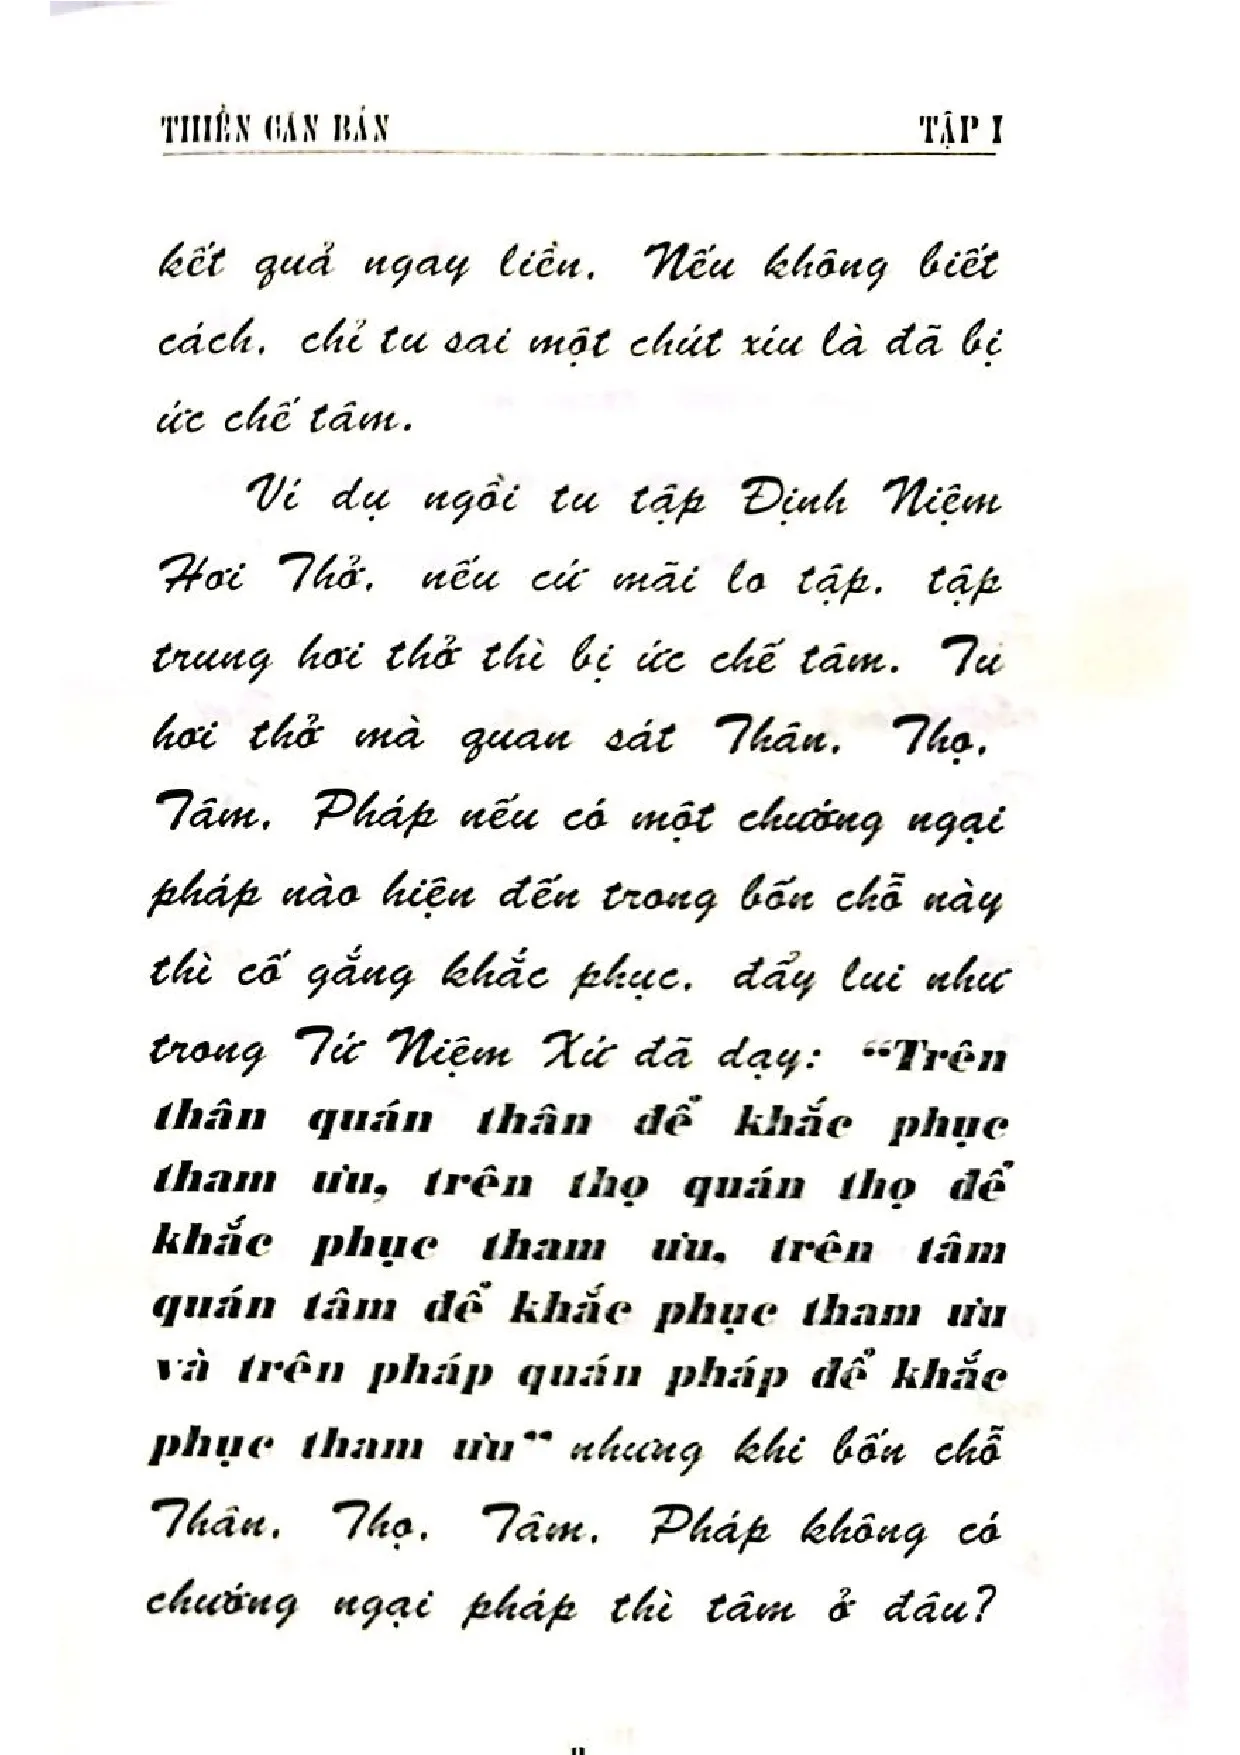 THIỀN CĂN BẢN TẬP I
kết quả ngay liền. Nếu không biết
cách, chỉ tu sai một chút xíu là đã bị
ức chế tâm.
Ví dụ ngồi tu tập Định Niệm
Hơi Thở, nếu cứ mãi lo tập, tập
trung hơi thở thì bị ức chế tâm. Tu
hơi thở mà quan sát Thân, Thọ,
Tâm, Pháp nếu có một chướng ngại
pháp nào hiện đến trong bốn chỗ này
thì cố gắng khắc phục, đẩy lui như
trong Tứ Niệm Xứ đã dạy: “Trên
thân quán thân để khắc phục
tham ưu, trên thọ quán thọ để
khắc phục tham ưu, trên tâm
quán tâm để khắc phục tham ưu
và trên pháp quán pháp để khắc
phục tham ưu” nhưng khi bốn chỗ
Thân, Thọ, Tâm, Pháp không có
chướng ngại pháp thì tâm ở đâu?